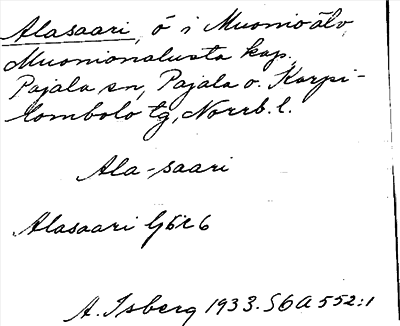 Alasaari, ö i Muonioälv,
Muonionalusta kap.
Pajala sn, Pajala o. Korpi-
lombolo tg, Norrb. l.
Ala-saari
Alasaari
A. Isberg 1933. S6A552:1